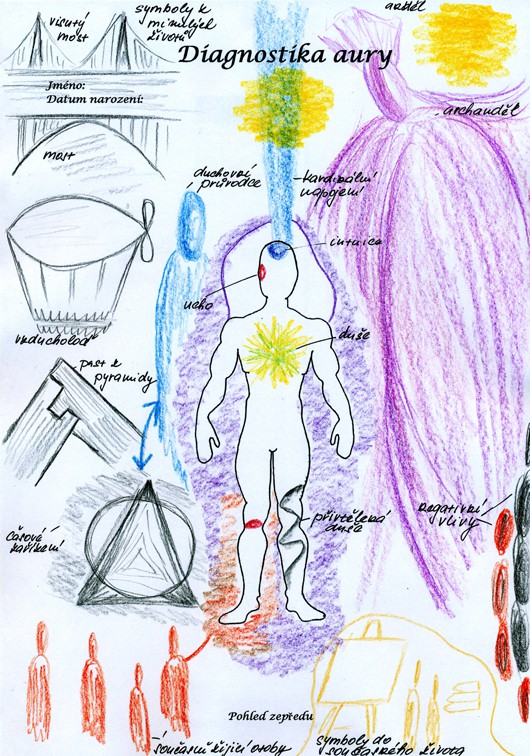 symboly k
minulých
životů
anděl
visutý
most
Diagnostika aury
Jméno:
Datum narození:
archanděl
most
duchovní
průvodce
kardinální
napojení
intuice
ucho
duše
vzducholoď
past k
pyramidy
přivtělená
duše
negativní
vlivy
časové
zařízení
Pohled zepředu
současní žijící osoby
symboly do
současného života